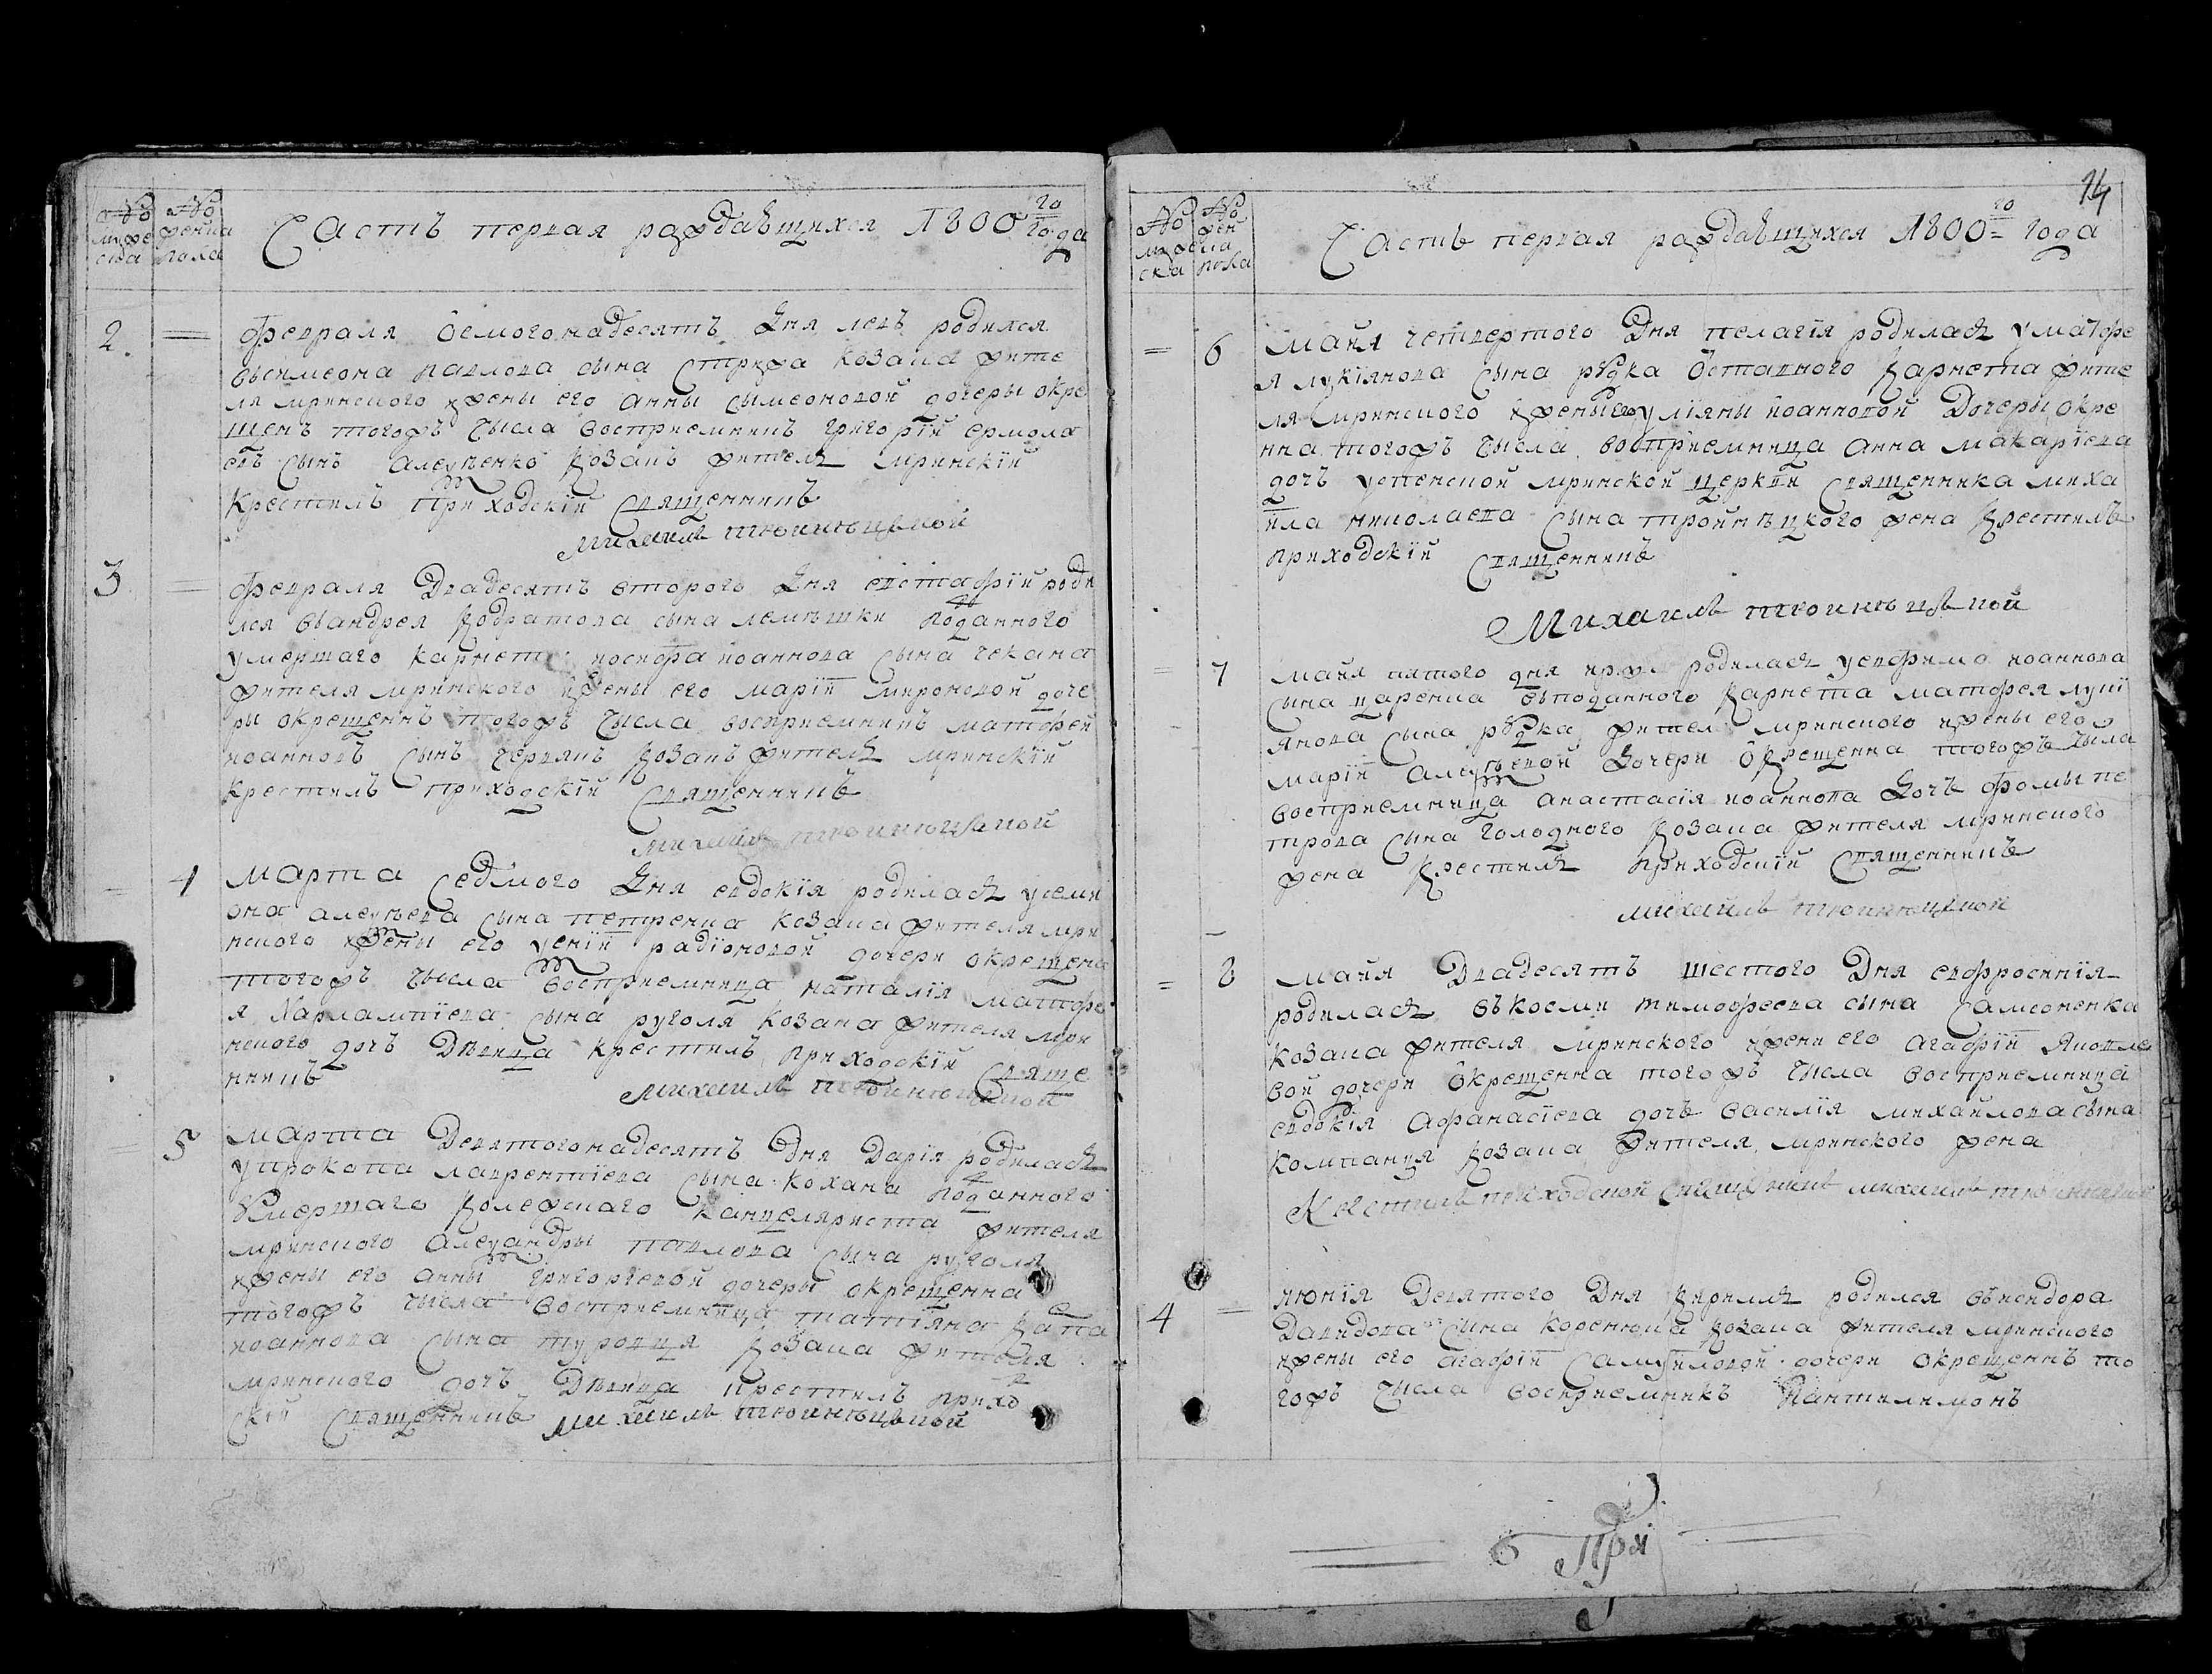 № мужеска
№ женска пола
Часть первая раждавшихся 1800 го года
2.
февраля осмогонадесять Дня левъ родился
въсимеона павлова сына Стрижа козака жите
ля мринского жены его анны симеоновой дочеры окре
щенъ тогожъ чысла восприемникъ григорїй ермола
евъ сынъ козакъ житель мринскїй
Крестилъ Приходскїй Священникъ
Михаилъ
3
февраля Двадесять второго Дня евстафїй роди
лся въандрея кодратова сына лемешки поданного
умершаго карнета иосифа иоаннова сына чекана
жителя мринского жены его марїи мироновой доче
ры окрещеннъ тогожъ чысла восприемникъ матфей
иоанновъ сынъ червякъ козакъ житель мринскїй
Крестилъ приходскїй Священникъ
Михаилъ
1
Марта Седмого Дня евдокїя родилась усеми
она алексѣева сына петренка козака жителя мри
нского жены его ксенїи радїоновой дочери окрещена
тогожъ чысла восприемница наталїя матфе
я Харлампїева сына руголя козака жителя мри
нского дочъ Дѣвица крестилъ приходскїй Свяще
нникъ
Михаилъ
5
Марта Девятогонадесять Дня Дарїя родилась
упрокопа лаврентїева сына кохана поданного
Умершаго колежскаго канцеляриста жителя
мринского александры павлова сына руголя
жены его анны григорїевой дочеры окрещенна
тогожъ чысла восприемница татїяна
иоаннова сына туровця козака жителя
мринского дочъ Дѣвица крестилъ прихо
скїй Священникъ Михаилъ
14
№ мужеска
№ женска пола
Часть первая раждавшихся 1800 го года
6
Майя четвертого Дня пелагїя родилась уматфе
я лукїянова сына рудка отставного карнета жите
ля мринского жены его улїяны иоанновой Дочеры окре
нна тогожъ чысла восприемница анна макарїева
дочъ успенской мринской церкви священника миха
ила николаева сына тройнѣцкого жена Крестилъ
приходскїй Священникъ
Михаилъ
7
майя пятого дня родилась уевфима иоаннова
сына царенка въподанного карнета матфея лукї
янова сына рудка жителя мринского жены его
марїи алексѣевой Дочери окрещенна тогожъ чысла
восприемница анастасїя иоаннова Дочъ фомы пе
трова сына голодного козака жителя мринского
жена Крестилъ приходскїй Священникъ
Михаилъ
8
майя Двадесять шестого Дня евфросинїя
родилась въкосми тимофеева сына Самсоненка
козака жителя мринского жени его агафїи Яковле
вой дочери окрещенна тогожъ чысла восприемница
евдокїя Афанасїева дочъ василїя михайлова сына
компанця козака жителя мринского жена
Крестилъ приходской священникъ михаилъ
4
июнїя Девятого Дня Кирилъ родился въисидора
Давидова сына коренюка козака жителя мринского
жены его агафїи Самуйловой дочери окрещеннъ то
гожъ чысла восприемникъ Пантилимонъ
При